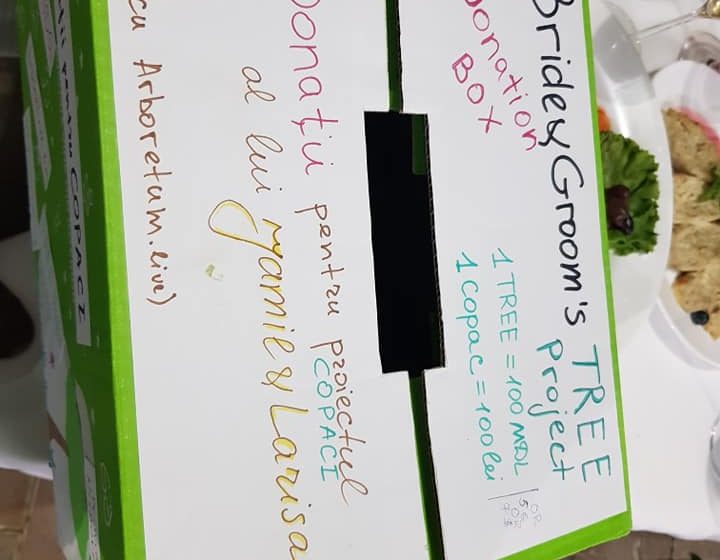 Bride & Groom's TREE
project
Donation
BOX
1 TREE = 100 MDL
1 copac = 100 lei
Donații pentru proiectul
COPACI
al lui Yamil & Larisa
cu Arboretum.live)
pentru COPACI